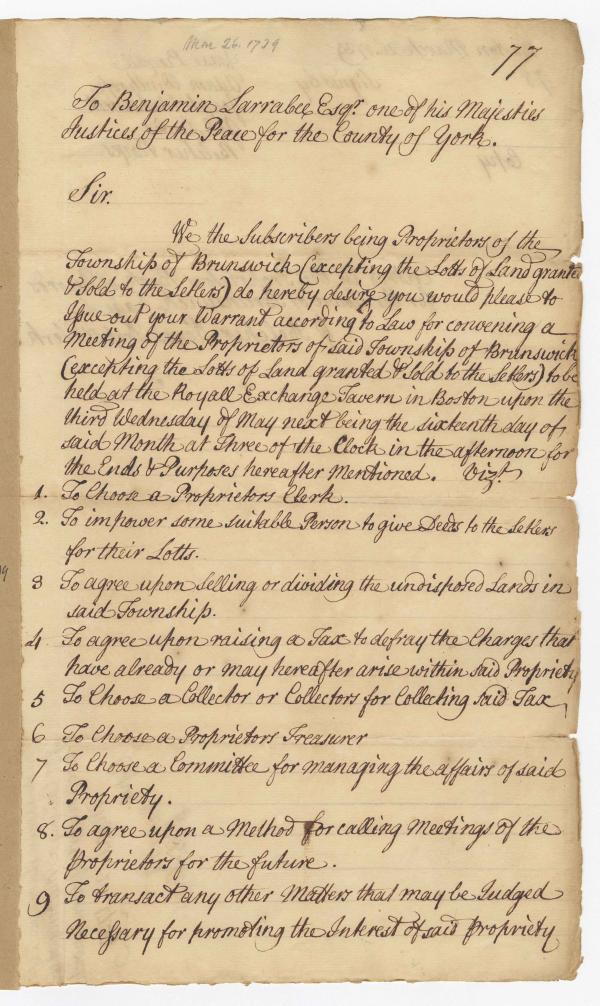 Mar 26. 1739
77
To Benjamin Larrabee Esqr. one of his Majesties
Justices of the Peace for the County of York.
Sir.
We the Subscribers being Proprietors of the
Township of Brunswick (excepting the Lotts of Land granted
& Sold to the Setlers) do hereby desire you would please to
Issue out your Warrant according to Law for convening a
Meeting of the Proprietors of said Township of Brunswick
(excepting the Lotts of Land granted & Sold to the Setlers) to be
held at the Royall Exchange Tavern in Boston upon the
third Wednesday of May next being the sixteenth day of
said Month at Three of the Clock in the afternoon for
the Ends & Purposes hereafter Mentioned. Vizt.
1. To Choose a Proprietors Clerk.
2. To impower some suitable Person to give Deeds to the Setlers
for their Lotts.
3 To agree upon Selling or dividing the undisposed Lands in
said Township.
4 To agree upon raising a Tax to defray the Charges that
have already or may hereafter arise within said Propriety
5 To Choose a Collector or Collectors for Collecting said Tax
6 To Choose a Proprietors Treasurer
7 To Choose a Committee for managing the affairs of said
Propriety.
8. To agree upon a Method for calling Meetings of the
Proprietors for the future.
9 To transact any other Matters that may be Judged
Necessary for promoting the Interest of said Propriety